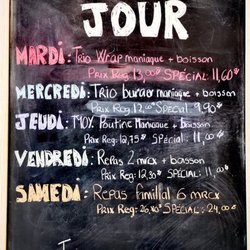 JOUR
MARDI: Trio Wrap maniaque + boisson
Prix Reg: 13,00$ SPECIAL: 11,60$
MERCREDI: Trio burger maniaque + boisson
Prix Reg: 12,00$ SPECIAL: 9,90$
JEUDI: Moy. Poutine Maniaque + boisson
Prix Reg: 12,75$ SPECIAL: 11,00$
VENDREDI: Repas 2 mrcx + boisson
Prix Reg: 12,50$ SPECIAL: 11,00$
SAMEDI: Repas familial 6 mrcx
Prix Reg: SPECIAL: 24,00$